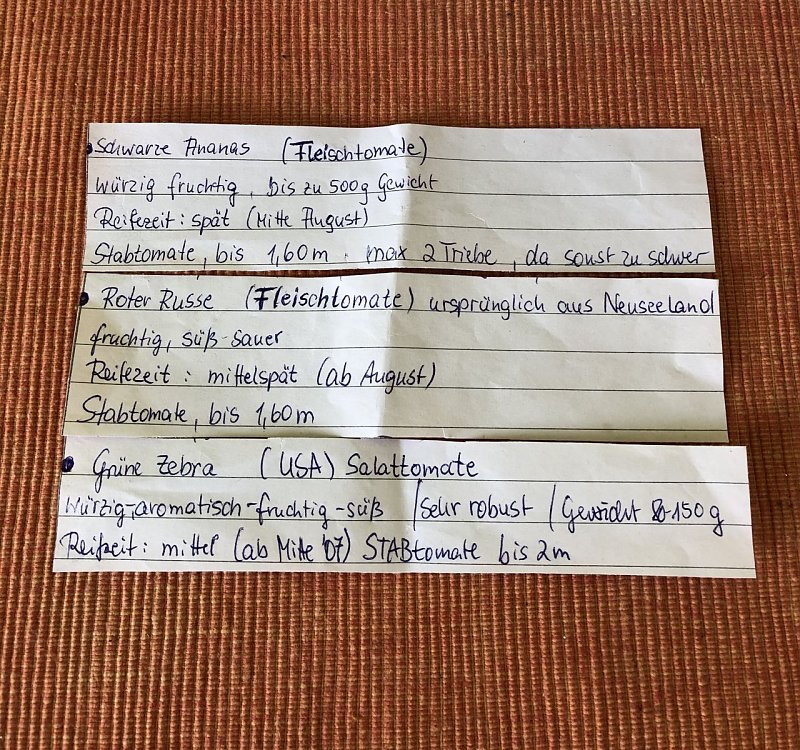 • Schwarze Ananas (Fleischtomate)
würzig fruchtig, bis zu 500g Gewicht
Reifezeit: spät (Mitte August)
Stabtomate, bis 1,60m. max 2 Triebe, da sonst zu schwer
• Roter Russe (Fleischtomate) ursprünglich aus Neuseeland
fruchtig, süß-sauer
Reifezeit: mittelspät (ab August)
Stabtomate, bis 1,60m
• Grüne Zebra (USA) Salattomate
würzig-aromatisch-fruchtig-süß / Sehr robust / Gewicht -150g
Reifzeit: mittel (ab Mitte '07) STABtomate bis 2m